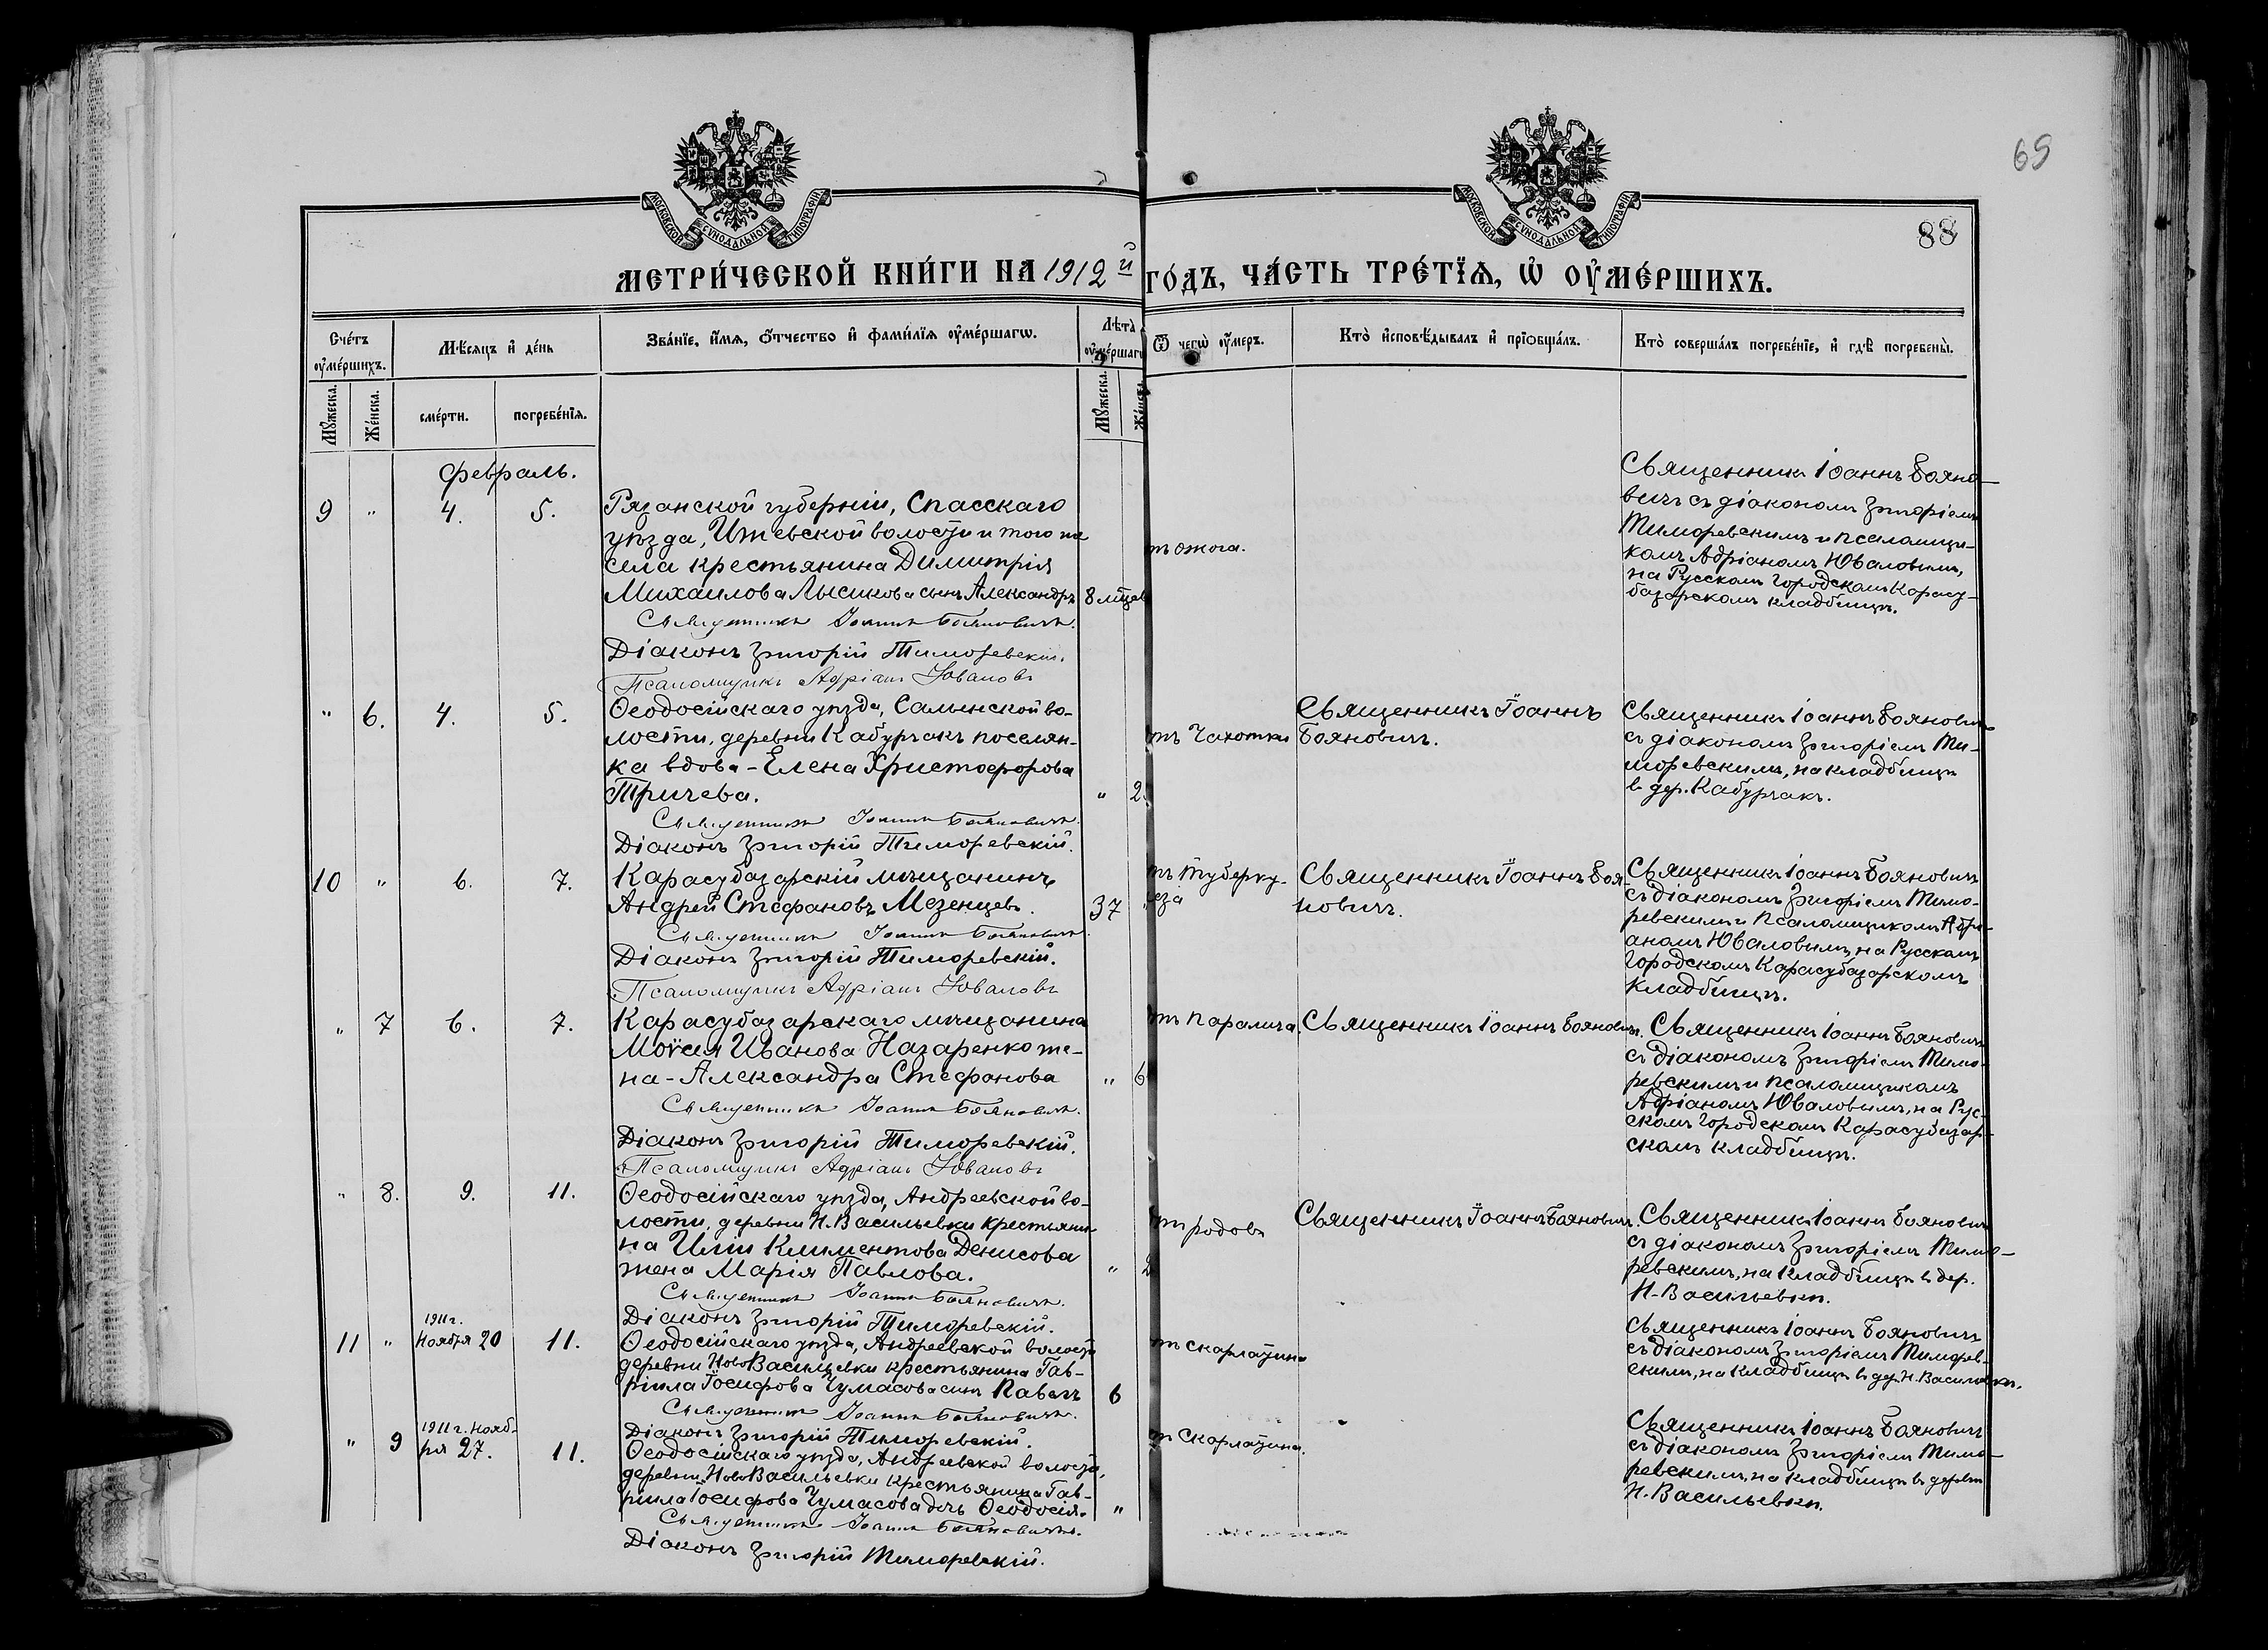 69
88
МОСКОВСКОЙ СѴНОДАЛЬНОЙ ТИПОГРАФІИ
МОСКОВСКОЙ СѴНОДАЛЬНОЙ ТИПОГРАФІИ
МЕТРИ́ЧЕСКОЙ КНИ́ГИ НА 1912 й ГО́ДЪ, ЧА́СТЬ ТРЕ́ТЇѦ, Ѡ҆ ОУ҆МЕ́РШИХЪ.
Сче́тъ оу҆ме́ршихъ.
Мѣ́сяцъ и҆ де́нь
Зва́нїе, и҆́мѧ, ѻ҆́тчество и҆ фами́лїѧ оу҆ме́ршагѡ.
Лѣта̀ оу҆ме́ршагѡ
Ѿ чегѡ̀ оу҆́меръ.
Кто̀ и҆сповѣ́дывалъ и҆ прїѡбща́лъ.
Кто̀ соверша́лъ погребе́нїе, и҆ гдѣ̀ погребены̀.
Мꙋ́жеска.
Же́нска.
сме́рти.
погребе́нїѧ.
Мꙋ́жеска.
Февраль.
9 " 4. 5.
Рязанской губерніи, Спасскаго
уѣзда, Ижевской волости и того же
села крестьянина Димитрія
Михаилова Лысикова сынъ Александръ 8 мцев
Священникъ Іоаннъ Бояновичъ.
Діаконъ Григорій Тиморевскій.
Псаломщикъ Адріанъ Юваловъ
тъ ожога.
Священникъ Іоаннъ Бояно-
вичъ съ діакономъ Григоріемъ
Тиморевскимъ и псаломщи-
комъ Адріаномъ Юваловымъ,
на Русскомъ городскомъ Карасу-
базарскомъ кладбищѣ.
" 6. 4. 5.
Ѳеодосійскаго уѣзда, Салынской во-
лости, деревни Кабурчакъ поселян-
ка вдова - Елена Христофорова
Тричева. " 2
Священникъ Іоаннъ Бояновичъ.
Діаконъ Григорій Тиморевскій.
тъ Чахотки
Священникъ Іоаннъ
Бояновичъ.
Священникъ Іоаннъ Бояновичъ
съ діакономъ Григоріемъ Ти-
моревскимъ, на кладбищѣ
въ дер. Кабурчакъ.
10 " 6. 7.
Карасубазарскій мѣщанинъ
Андрей Стефановъ Мезенцевъ. 37
Священникъ Іоаннъ Бояновичъ.
Діаконъ Григорій Тиморевскій.
Псаломщикъ Адріанъ Юваловъ
тъ туберку-
еза
Священникъ Іоаннъ Боя-
новичъ.
Священникъ Іоаннъ Бояновичъ
съ діакономъ Григоріемъ Тимо-
ревскимъ и псаломщикомъ Адрі-
аномъ Юваловымъ, на Русскомъ
Городскомъ Карасубазарскомъ
кладбищѣ.
" 7 6. 7.
Карасубазарскаго мѣщанина
Моѵсея Иванова Назаренко же-
на - Александра Стефанова " 6
Священникъ Іоаннъ Бояновичъ.
Діаконъ Григорій Тиморевскій.
Псаломщикъ Адріанъ Юваловъ
тъ паралича.
Священникъ Іоаннъ Бояновичъ.
Священникъ Іоаннъ Бояновичъ
съ діакономъ Григоріемъ Тимо-
ревскимъ и псаломщикомъ
Адріаномъ Юваловымъ, на Рус-
скомъ Городскомъ Карасубазар-
скомъ кладбищѣ.
" 8. 9. 11.
Ѳеодосійскаго уѣзда, Андреевской во-
лости, деревни Н. Васильевки крестьяни-
на Иліи Климентова Денисова
жена Марія Павлова. " 2
Священникъ Іоаннъ Бояновичъ.
Діаконъ Григорій Тиморевскій.
тъ родовъ
Священникъ Іоаннъ Бояновичъ.
Священникъ Іоаннъ Бояновичъ
съ діакономъ Григоріемъ Тимо-
ревскимъ, на кладбищѣ въ дер.
Н-Васильевкѣ.
11 " 1911 г. Ноября 20 11.
Ѳеодосійскаго уѣзда, Андреевской волости
деревни НовоВасильевки крестьянина Гав-
ріила Іосифова Чумасова сынъ Павелъ 6
Священникъ Іоаннъ Бояновичъ.
Діаконъ Григорій Тиморевскій.
тъ скарлатины
Священникъ Іоаннъ Бояновичъ
съ діакономъ Григоріемъ Тиморев-
скимъ, на кладбищѣ въ дер. Н. Васильевкѣ.
" 9 1911 г. Нояб-
ря 27. 11.
Ѳеодосійскаго уѣзда, Андреевской волости,
деревни НовоВасильевки крестьянина Гав-
ріила Іосифова Чумасова дочь Ѳеодосія. "
Священникъ Іоаннъ Бояновичъ.
Діаконъ Григорій Тиморевскій.
тъ Скарлатины.
Священникъ Іоаннъ Бояновичъ
съ діакономъ Григоріемъ Тимо-
ревскимъ, на кладбищѣ въ деревнѣ
Н. Васильевкѣ.